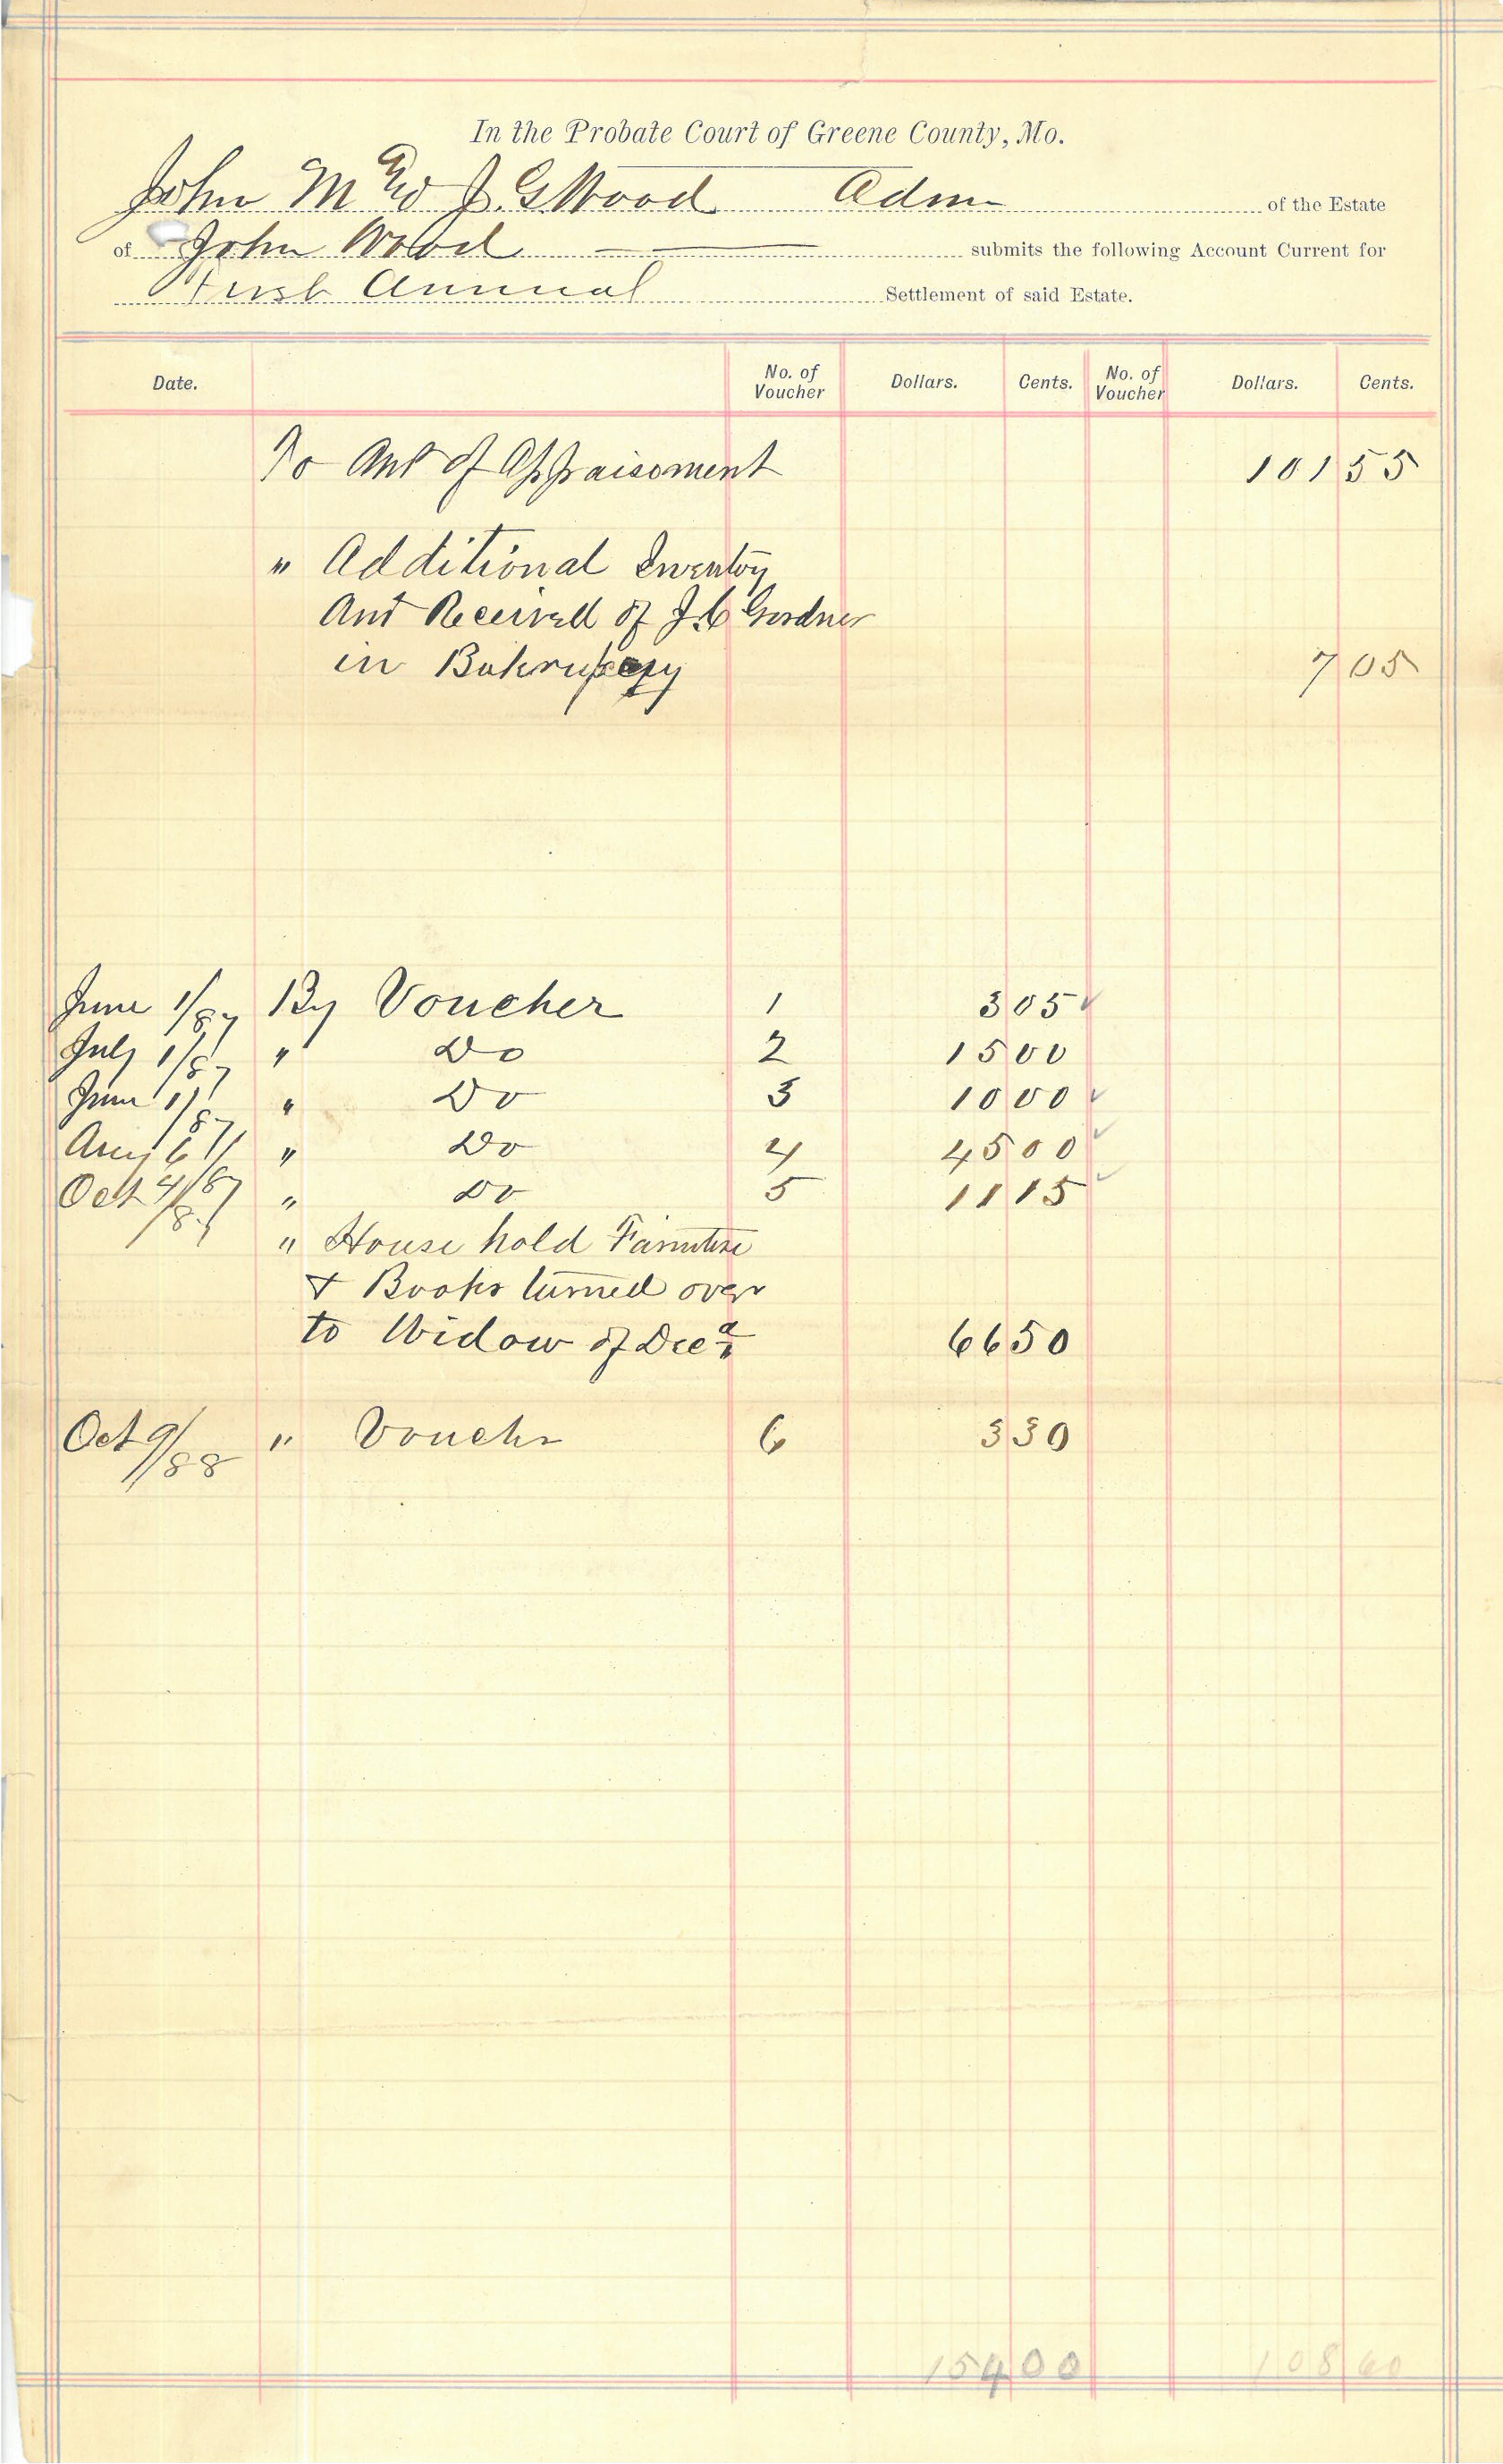 In the Probate Court of Greene County, Mo.
John McW J. G Wood Adm of the Estate
of John Wood submits the following Account Current for
First Annual Settlement of said Estate.
Date. No. of Voucher Dollars. Cents. No. of Voucher Dollars. Cents.
To Amt of Appraisement 101 55
" Additional Inventory
Amt Received of J. C Gardner
in Bakrupcy 7 05
June 1/87 By Voucher 1 3 05
July 1/87 " Do 2 15 00
June 1/87 " Do 3 10 00
Aug 6/87 " Do 4 45 00
Oct 4/87 " Do 5 11 15
" House hold Furniture
& Books turned over
to Widow of Decd 66 50
Oct 9/88 " Vouchr 6 3 30
154 00 108 60